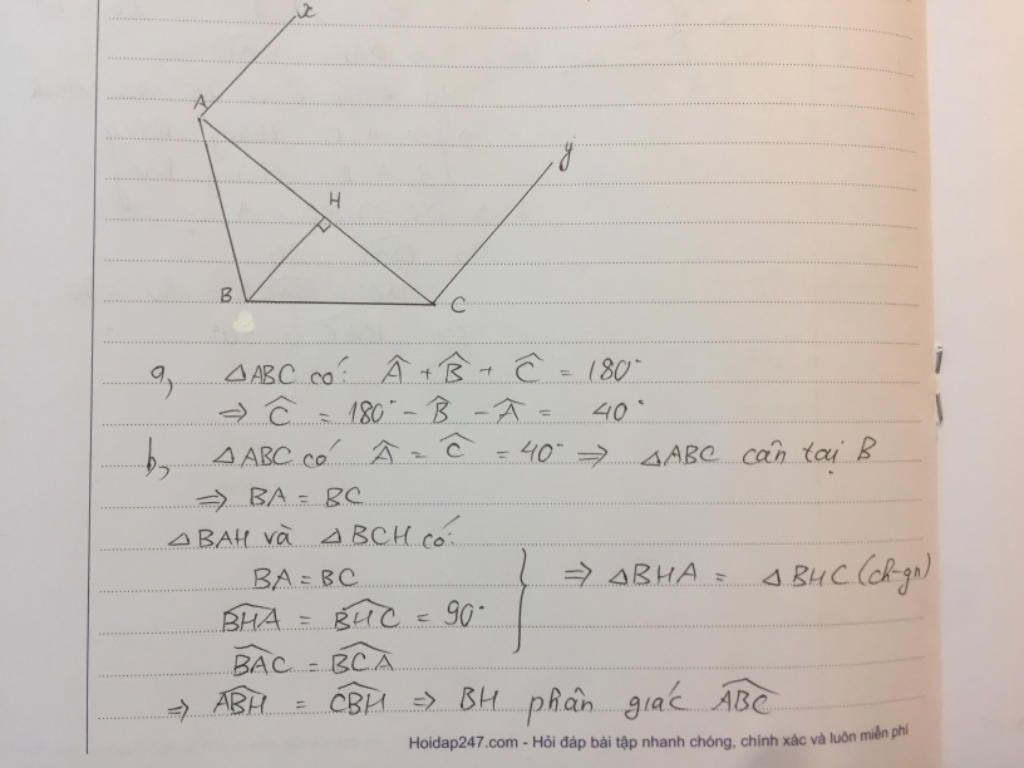 x
A
y
H
B
C
a, △ABC có: Â + B̂ + Ĉ = 180°
⇒ Ĉ = 180° - B̂ - Â = 40°
b, △ABC có Â = Ĉ = 40° ⇒ △ABC cân tại B
⇒ BA = BC
△BAH và △BCH có:
BA = BC
⇒ △BHA = △BHC (ch-gn)
B̂HA = B̂HC = 90°
B̂AC = B̂CA
⇒ ÂBH = ĈBH ⇒ BH phân giác ÂBC
Hoidap247.com - Hỏi đáp bài tập nhanh chóng, chính xác và luôn miễn phí